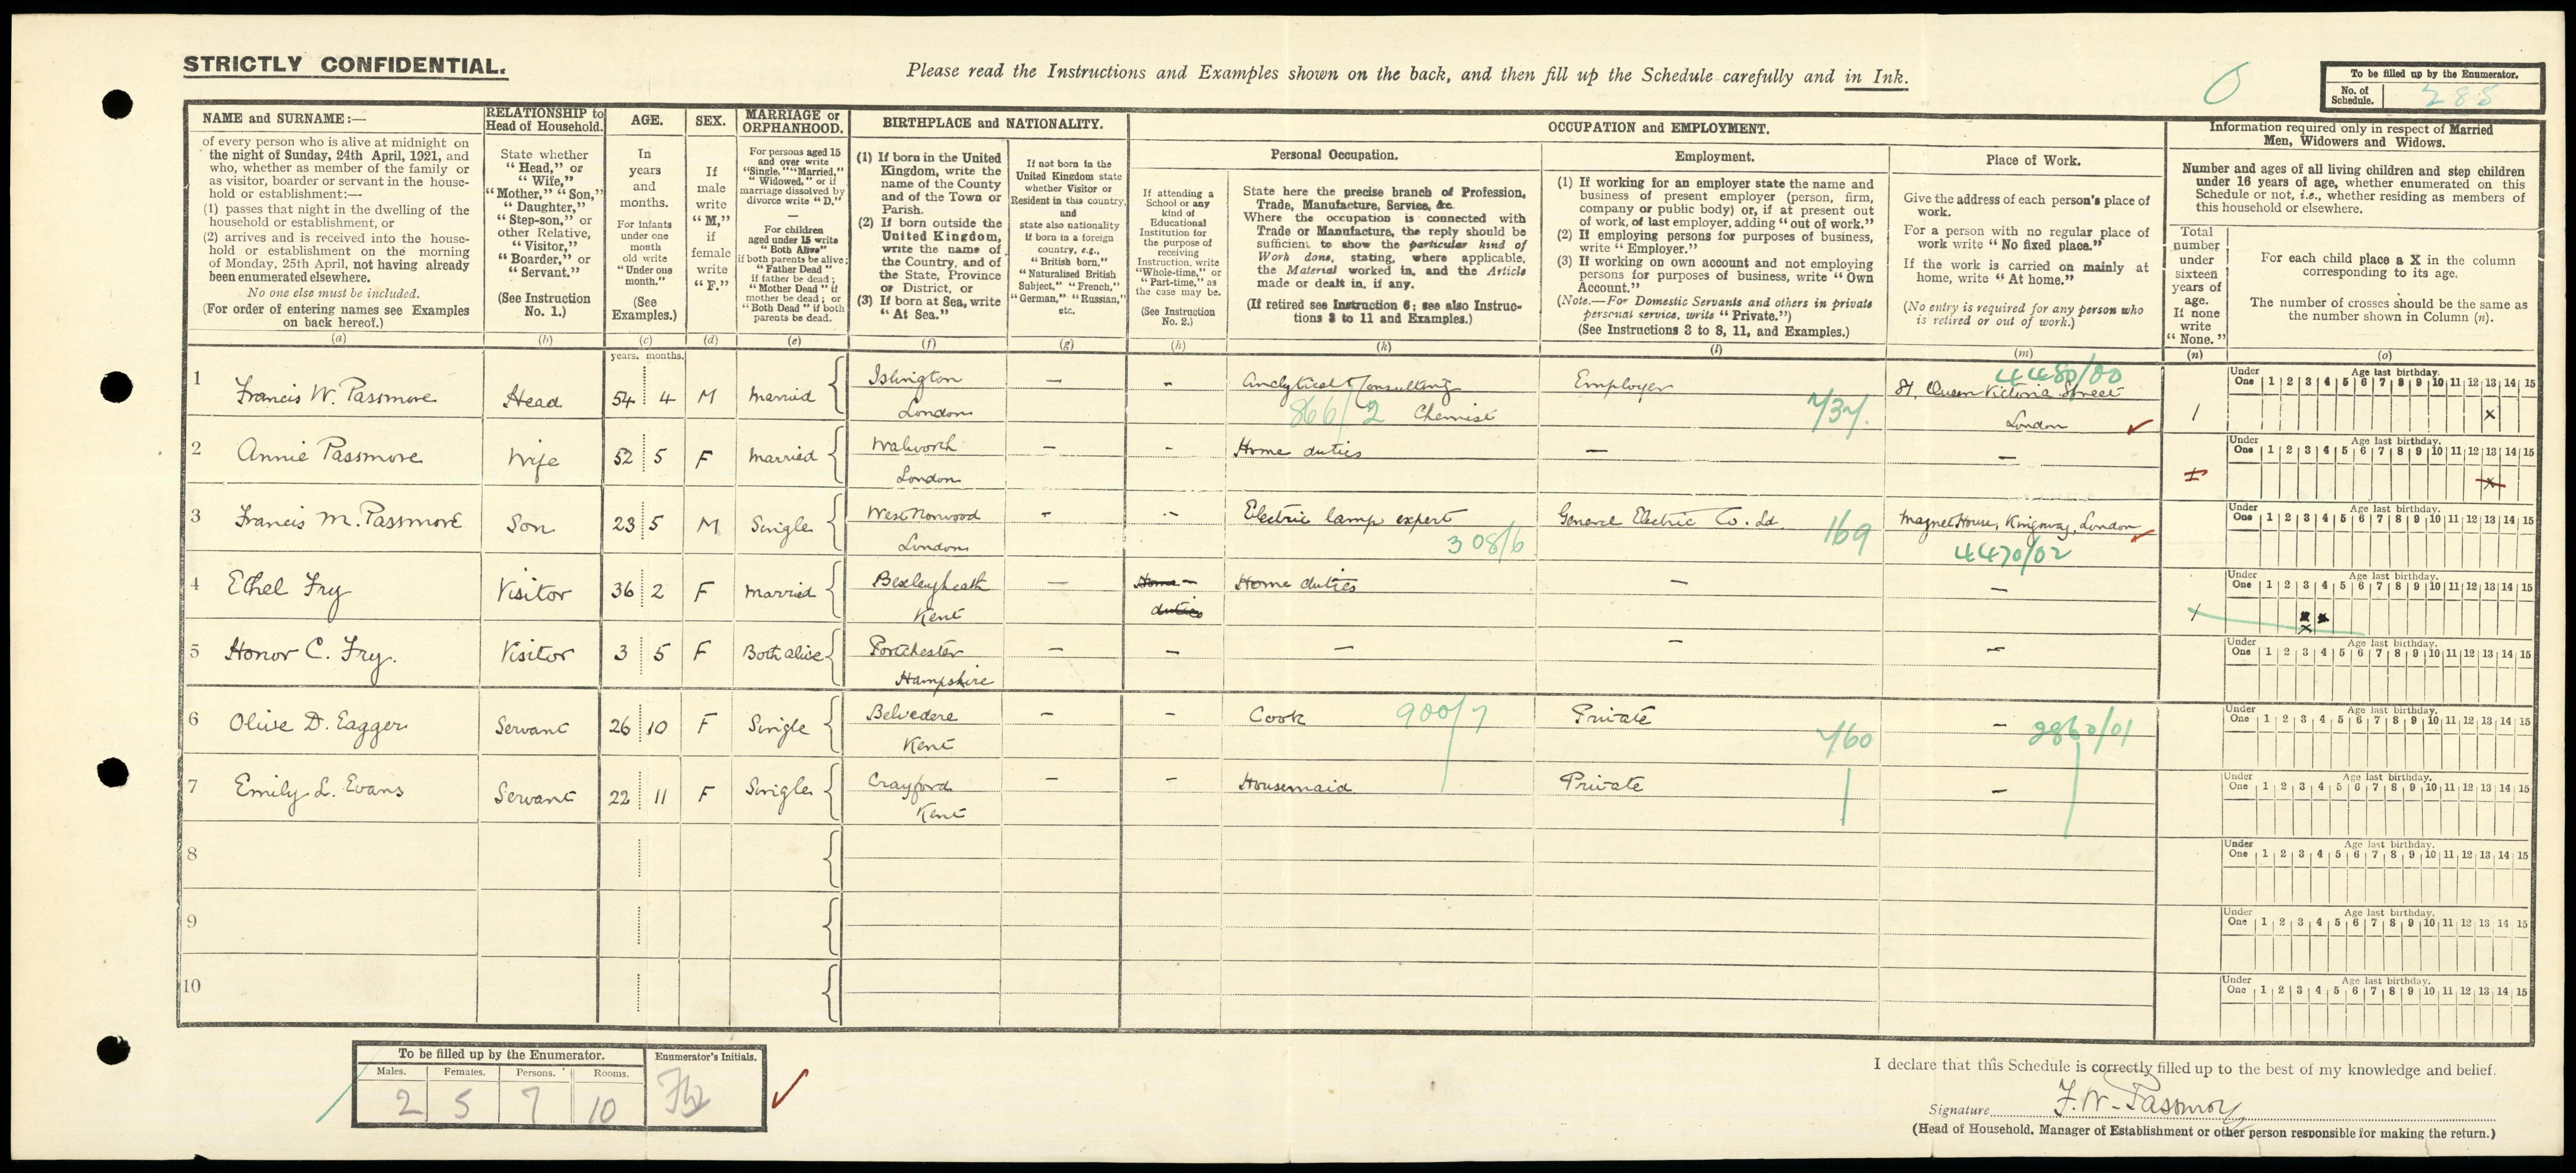 STRICTLY CONFIDENTIAL.
Please read the Instructions and Examples shown on the back, and then fill up the Schedule carefully and in Ink.
To be filled up by the Enumerator.
No. of Schedule. 285
NAME and SURNAME:—
of every person who is alive at midnight on
the night of Sunday, 24th April, 1921, and
who, whether as member of the family or
as visitor, boarder or servant in the house-
hold or establishment:—
(1) passes that night in the dwelling of the
household or establishment, or
(2) arrives and is received into the house-
hold or establishment on the morning
of Monday, 25th April, not having already
been enumerated elsewhere.
No one else must be included.
(For order of entering names see Examples
on back hereof.)
(a)
RELATIONSHIP to
Head of Household.
State whether
"Head," or
"Wife,"
"Mother," "Son,"
"Daughter,"
"Step-son," or
other Relative,
"Visitor,"
"Boarder," or
"Servant."
(See Instruction
No. 1.)
(b)
AGE.
In
years
and
months.
For infants
under one
month
old write
"Under one
month."
(See
Examples.)
(c)
SEX.
If
male
write
"M,"
if
female
write
"F."
(d)
MARRIAGE or
ORPHANHOOD.
For persons aged 15
and over write
"Single," "Married,"
"Widowed," or if
marriage dissolved by
divorce write "D."
—
For children
aged under 15 write
"Both Alive"
if both parents be alive;
"Father Dead"
if father be dead;
"Mother Dead" if
mother be dead; or
"Both Dead" if both
parents be dead.
(e)
BIRTHPLACE and NATIONALITY.
(1) If born in the United
Kingdom, write the
name of the County
and of the Town or
Parish.
(2) If born outside the
United Kingdom,
write the name of
the Country, and of
the State, Province
or District, or
(3) If born at Sea, write
"At Sea."
(f)
If not born in the
United Kingdom state
whether Visitor or
Resident in this country,
and
state also nationality
if born in a foreign
country, e.g.,
"British born,"
"Naturalised British
Subject," "French,"
"German," "Russian,"
etc.
(g)
OCCUPATION and EMPLOYMENT.
Personal Occupation.
If attending a
School or any
kind of
Educational
Institution for
the purpose of
receiving
Instruction, write
"Whole-time," or
"Part-time," as
the case may be.
(See Instruction
No. 2.)
(h)
State here the precise branch of Profession,
Trade, Manufacture, Service, &c.
Where the occupation is connected with
Trade or Manufacture, the reply should be
sufficient to show the particular kind of
Work done, stating, where applicable,
the Material worked in, and the Article
made or dealt in, if any.
(If retired see Instruction 6; see also Instruc-
tions 3 to 11 and Examples.)
(k)
Employment.
(1) If working for an employer state the name and
business of present employer (person, firm,
company or public body) or, if at present out
of work, of last employer, adding "out of work."
(2) If employing persons for purposes of business,
write "Employer."
(3) If working on own account and not employing
persons for purposes of business, write "Own
Account."
(Note.—For Domestic Servants and others in private
personal service, write "Private.")
(See Instructions 3 to 8, 11, and Examples.)
(l)
Place of Work.
Give the address of each person's place of
work.
For a person with no regular place of
work write "No fixed place."
If the work is carried on mainly at
home, write "At home."
(No entry is required for any person who
is retired or out of work.)
(m)
Information required only in respect of Married
Men, Widowers and Widows.
Number and ages of all living children and step children
under 16 years of age, whether enumerated on this
Schedule or not, i.e., whether residing as members of
this household or elsewhere.
Total
number
under
sixteen
years of
age.
If none
write
"None."
(n)
For each child place a X in the column
corresponding to its age.
The number of crosses should be the same as
the number shown in Column (n).
(o)
years. months.
1 Francis W. Passmore Head 54 4 M Married Islington London — - Analytical & Consulting Chemist 866/2 Employer Queen Victoria Street London 4480/00 1 x
Under One Age last birthday. 1 2 3 4 5 6 7 8 9 10 11 12 13 14 15
2 Annie Passmore Wife 52 5 F Married Walworth London — - Home duties — — x
Under One Age last birthday. 1 2 3 4 5 6 7 8 9 10 11 12 13 14 15
3 Francis M. Passmore Son 23 5 M Single West Norwood London - - Electric lamp expert 308/6 General Electric Co. Ld. 169 Magnet House, Kingsway, London 4470/02
Under One Age last birthday. 1 2 3 4 5 6 7 8 9 10 11 12 13 14 15
4 Ethel Fry Visitor 36 2 F Married Bexleyheath Kent — Home duties Home duties — — x
Under One Age last birthday. 1 2 3 4 5 6 7 8 9 10 11 12 13 14 15
5 Honor C. Fry. Visitor 3 5 F Both alive Portchester Hampshire — — — — —
Under One Age last birthday. 1 2 3 4 5 6 7 8 9 10 11 12 13 14 15
6 Olive D. Eagger Servant 26 10 F Single Belvedere Kent — - Cook 900/7 Private 760 — 2860/01
Under One Age last birthday. 1 2 3 4 5 6 7 8 9 10 11 12 13 14 15
7 Emily L. Evans Servant 22 11 F Single Crayford Kent — - Housemaid Private —
Under One Age last birthday. 1 2 3 4 5 6 7 8 9 10 11 12 13 14 15
8
Under One Age last birthday. 1 2 3 4 5 6 7 8 9 10 11 12 13 14 15
9
Under One Age last birthday. 1 2 3 4 5 6 7 8 9 10 11 12 13 14 15
10
Under One Age last birthday. 1 2 3 4 5 6 7 8 9 10 11 12 13 14 15
To be filled up by the Enumerator. Enumerator's Initials.
Males. Females. Persons. Rooms.
2 5 7 10
I declare that this Schedule is correctly filled up to the best of my knowledge and belief.
Signature F. W. Passmore
(Head of Household, Manager of Establishment or other person responsible for making the return.)